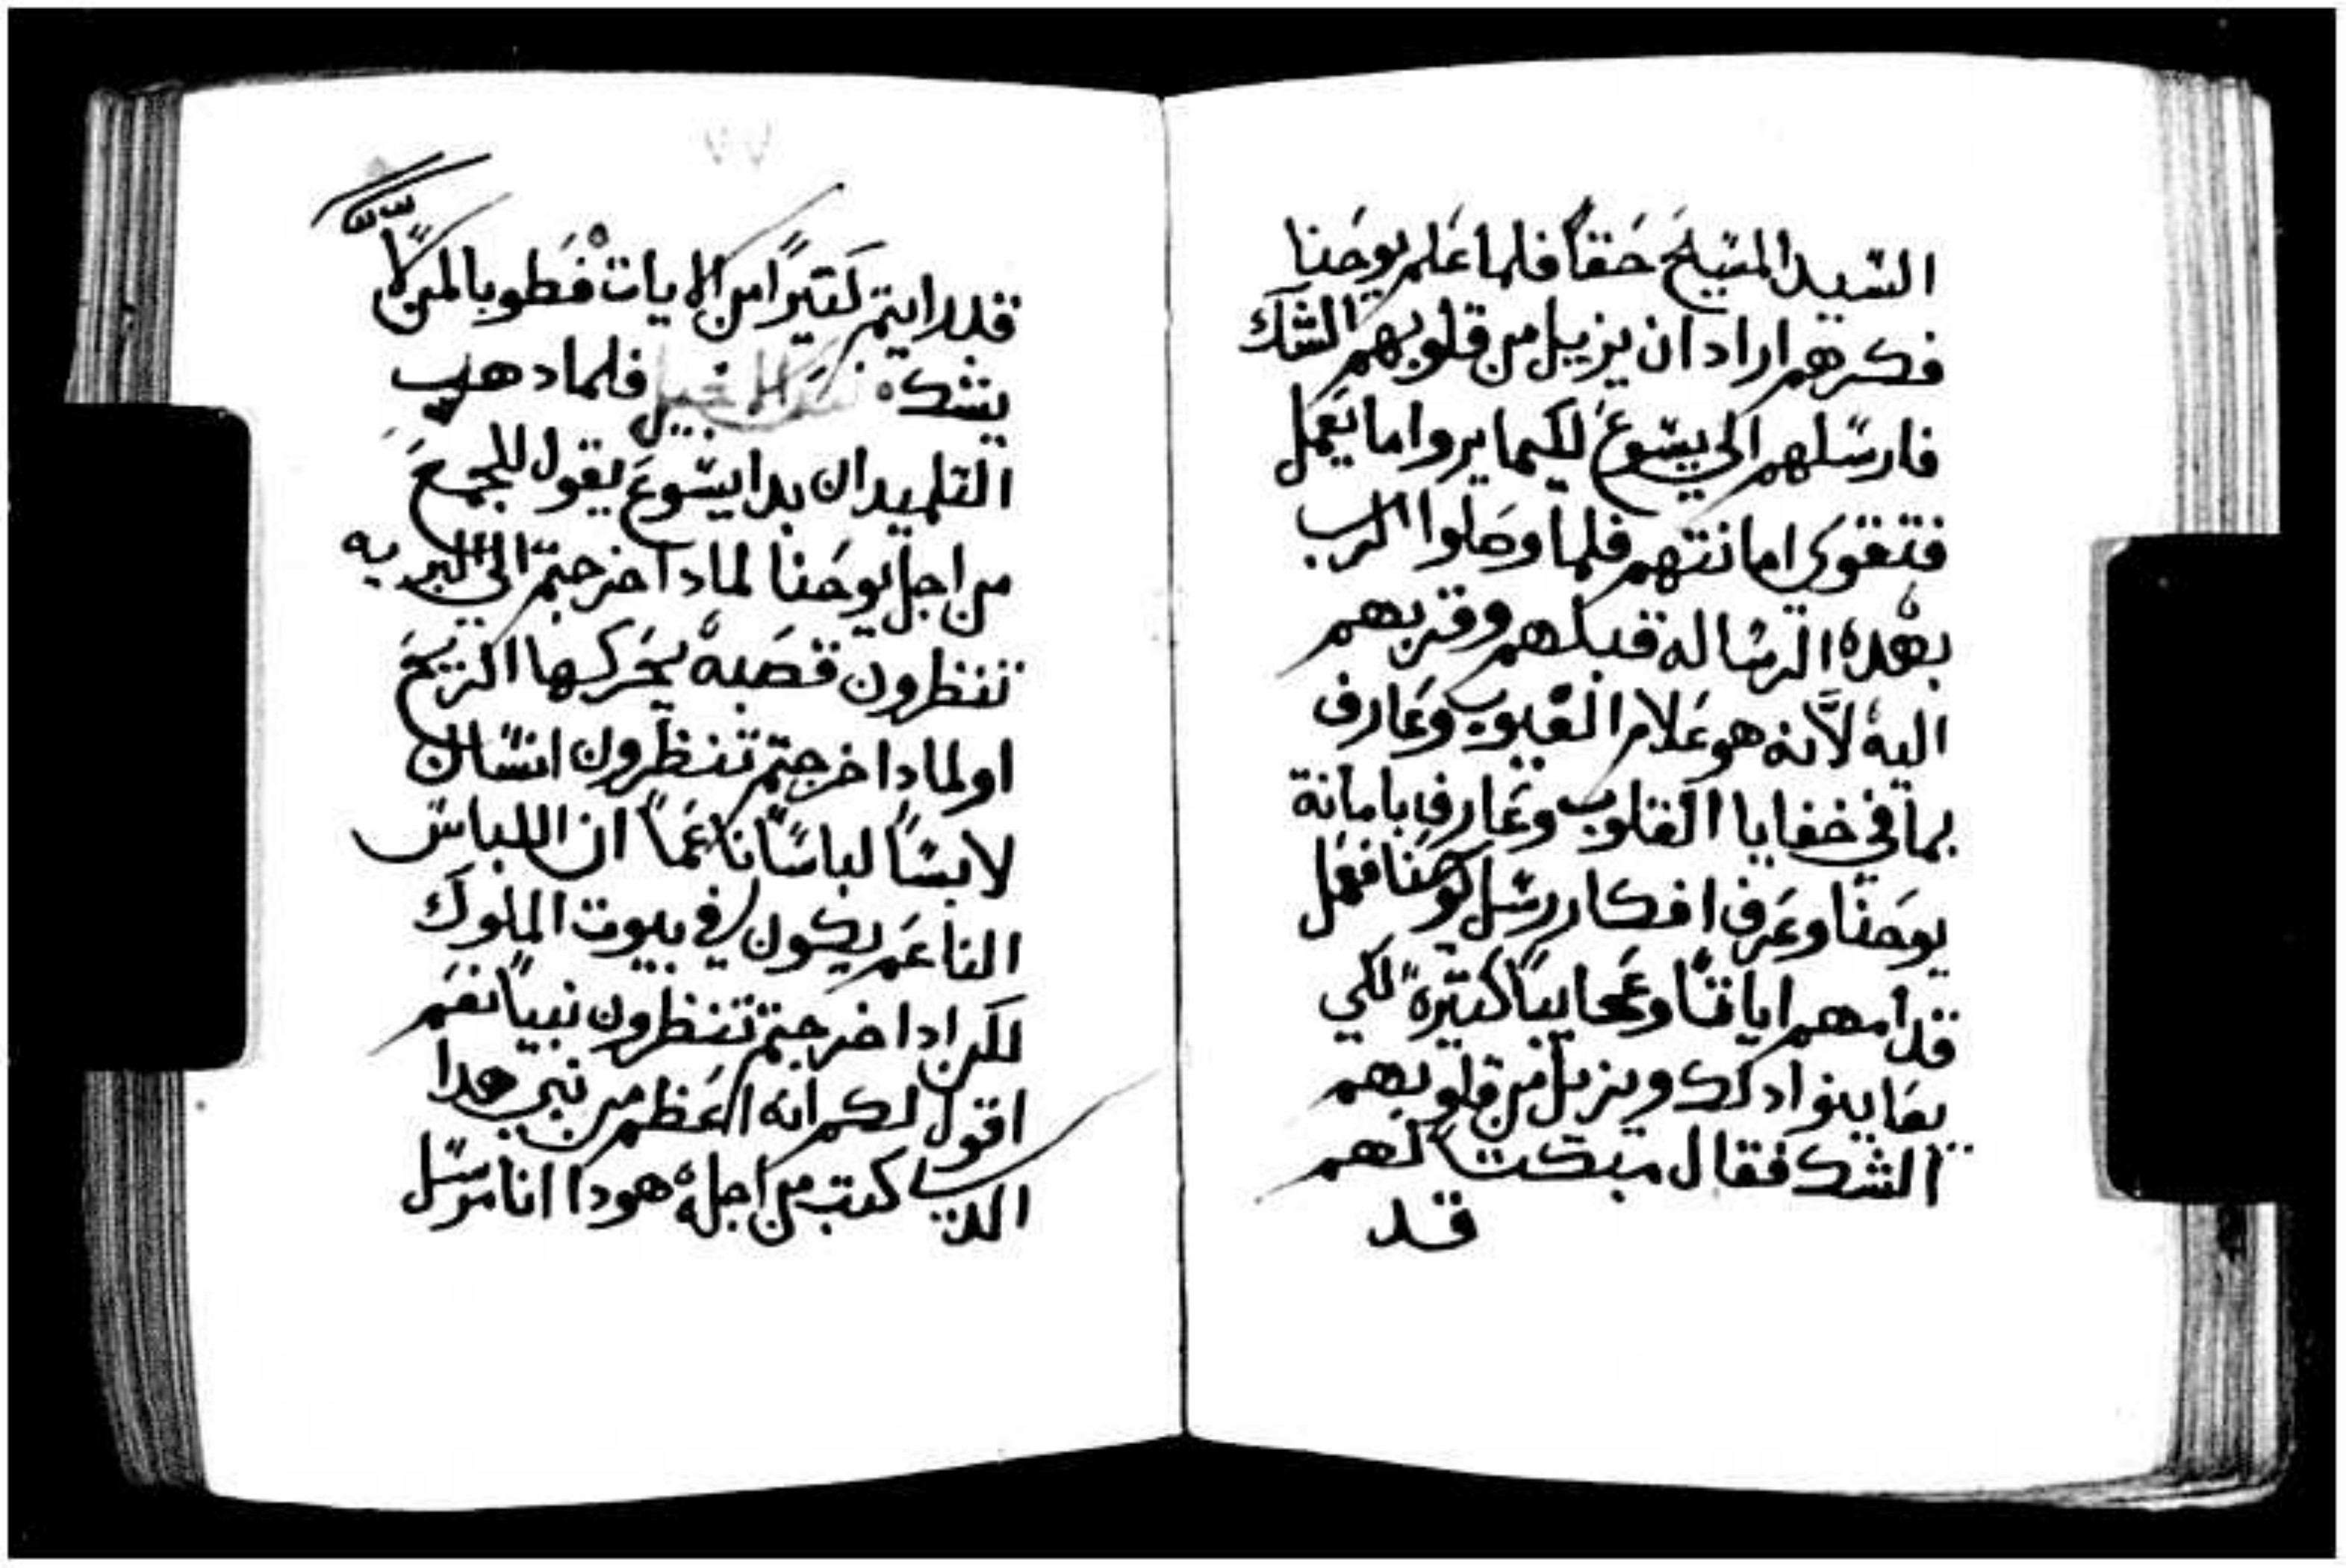 السيد المسيح حقاً فلما علم يوحنا
فكرهم اراد ان يزيل من قلوبهم الشك
فارسلهم الي يسوع لكيما يروا ما يعمل
فتقوي امانتهم فلما وصلوا الي الرب
بهده الرساله قبلهم وقربهم
اليه لانه هو علام الغيوب وعارف
بما في خفايا القلوب وعارف بامانة
يوحنا وعرف افكار رسل يوحنا ففعل
قدامهم اياتاً وعجايباً كتيرة لكي
يعاينوا دلك ويزيل من قلوبهم
الشك فقال مبكتاً لهم
قد
٧٧
قد رايتم كتيراً من الايات فطوبا لمن لا
يشك فلما دهب
التلميدان بدا يسوع يقول للجمع
من اجل يوحنا لمادا خرجتم الي البريه
تنظرون قصبه يحركها الريح
او لمادا خرجتم تنظرون انسان
لابساً لباساً ناعماً ان اللباس
الناعم يكون في بيوت الملوك
لكن ادا خرجتم تنظرون نبياً نعم
اقول لكم انه اعظم من نبي هدا
الدي كتب من اجله هودا انا مرسل